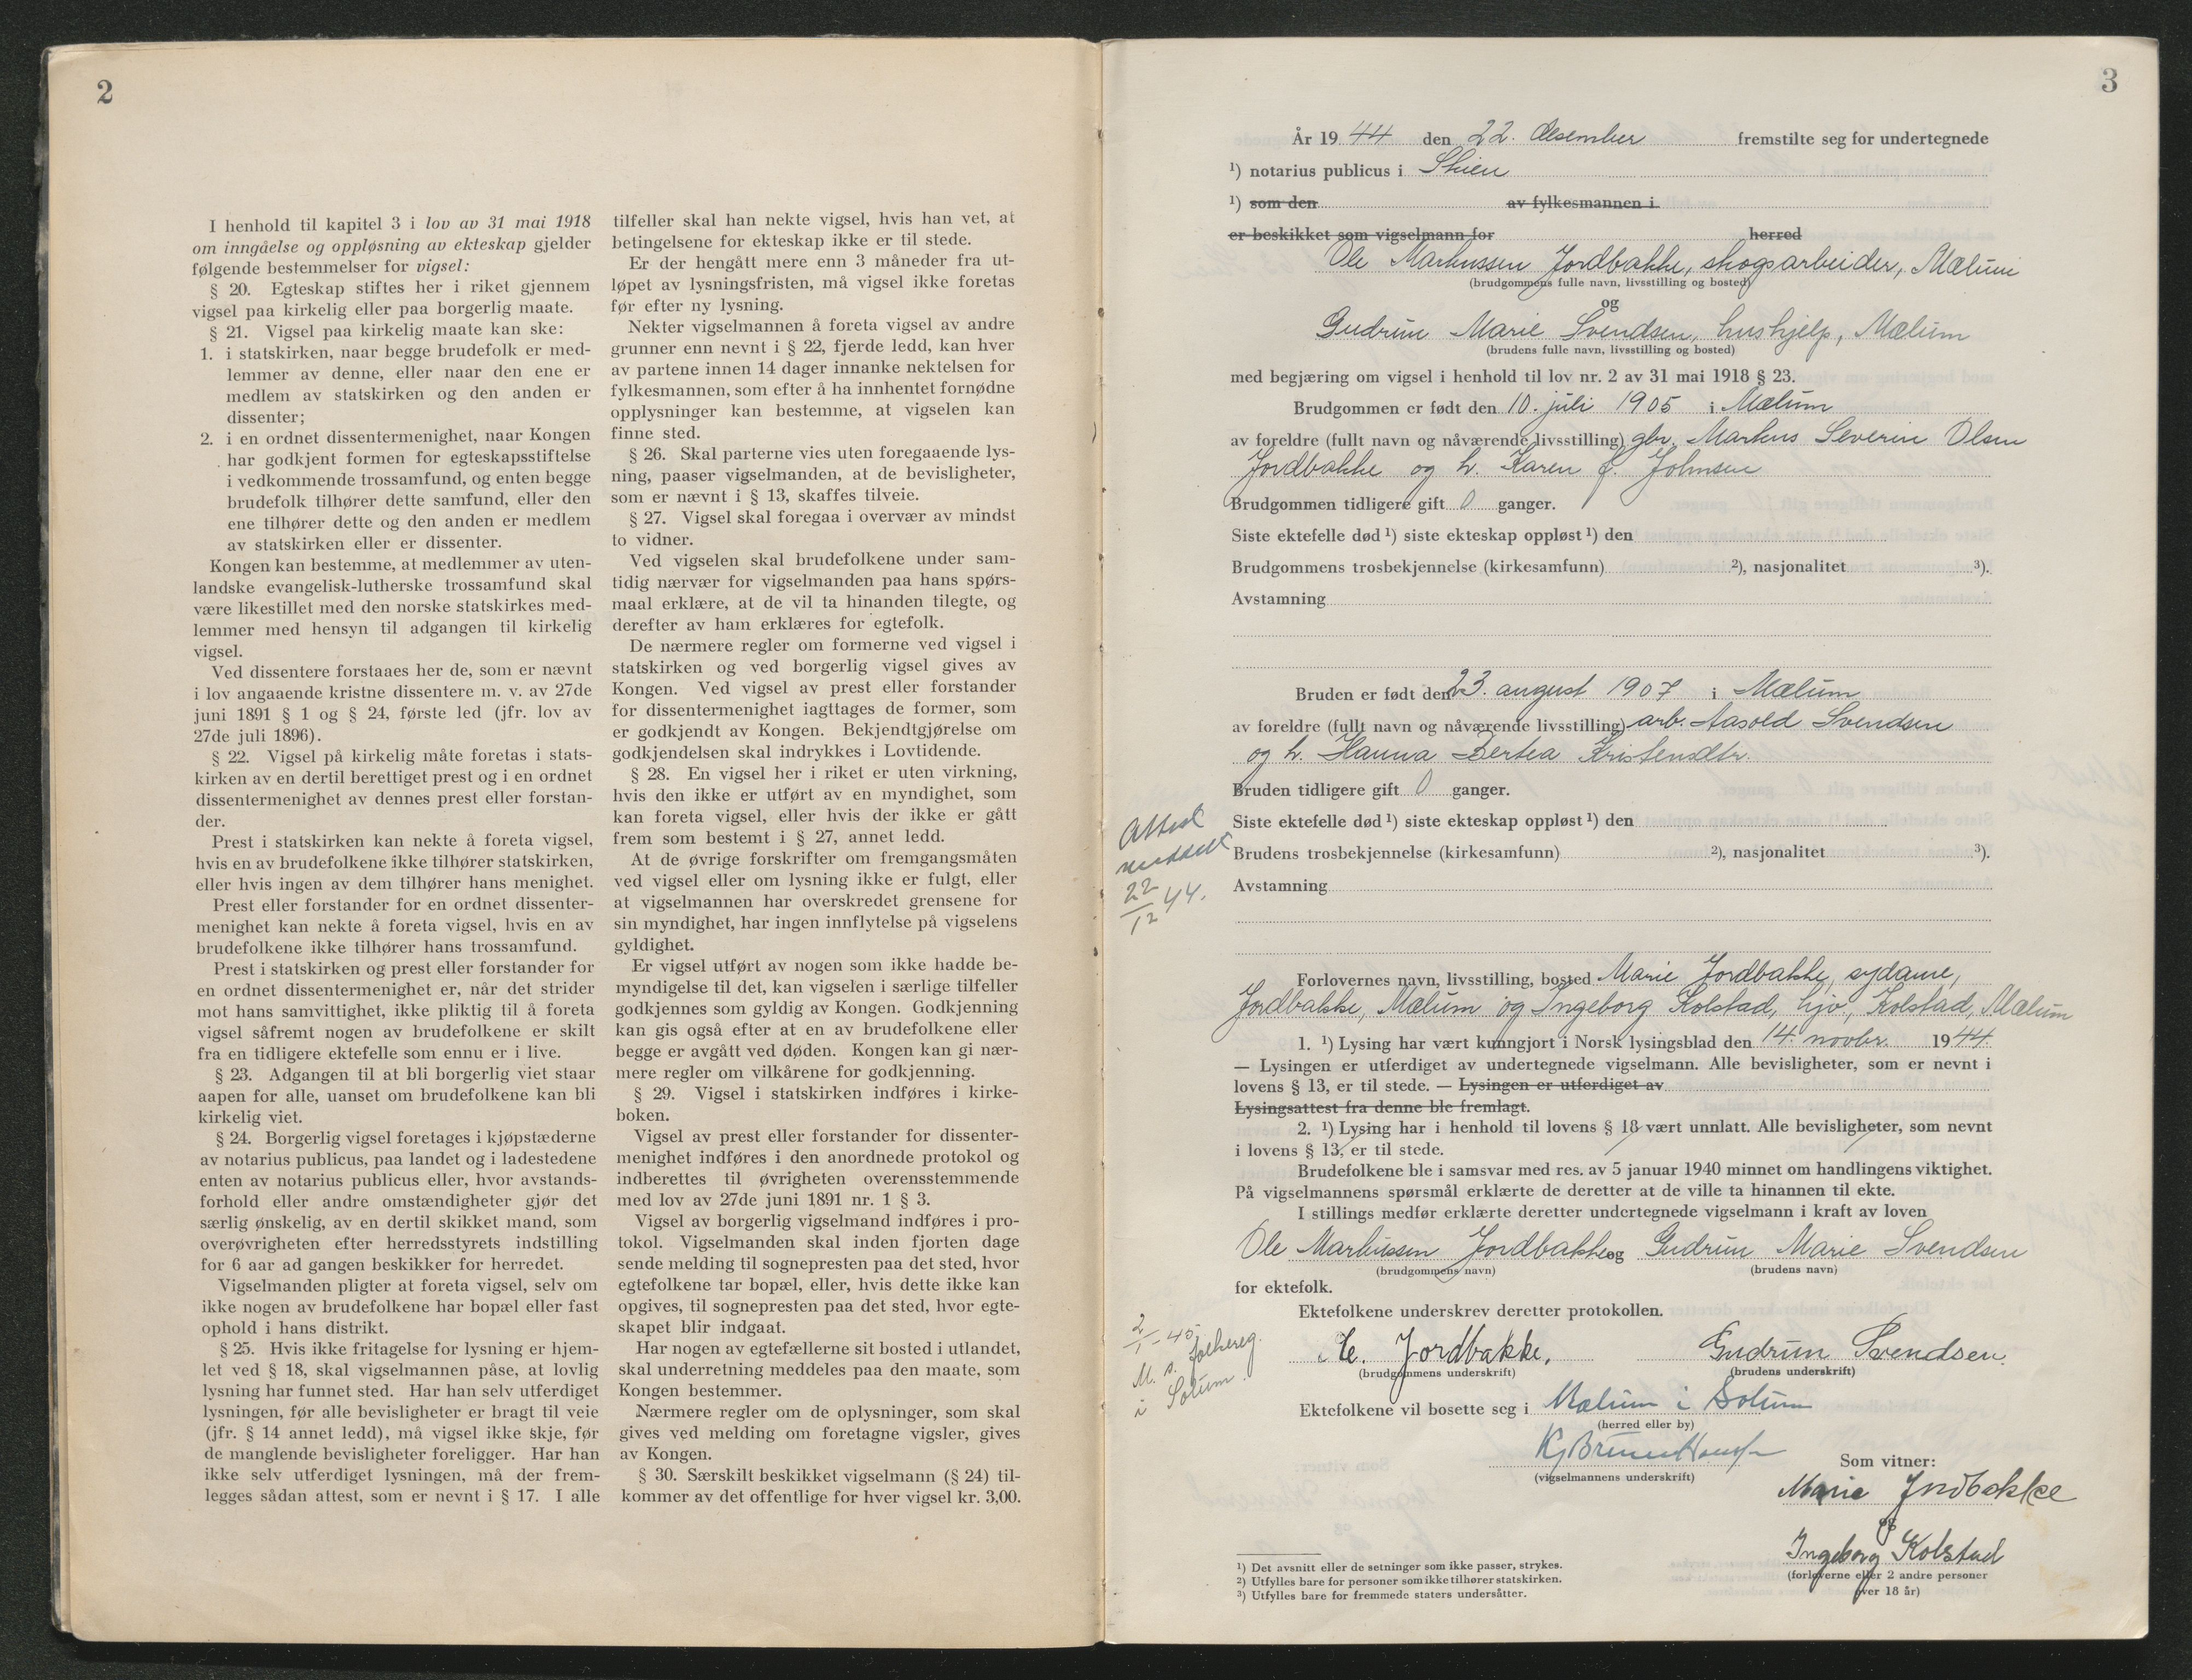 2
I henhold til kapitel 3 i lov av 31 mai 1918
om inngåelse og oppløsning av ekteskap gjelder
følgende bestemmelser for vigsel:
§ 20. Egteskap stiftes her i riket gjennem
vigsel paa kirkelig eller paa borgerlig maate.
§ 21. Vigsel paa kirkelig maate kan ske:
1. i statskirken, naar begge brudefolk er med-
lemmer av denne, eller naar den ene er
medlem av statskirken og den anden er
dissenter;
2. i en ordnet dissentermenighet, naar Kongen
har godkjent formen for egteskapsstiftelse
i vedkommende trossamfund, og enten begge
brudefolk tilhører dette samfund, eller den
ene tilhører dette og den anden er medlem
av statskirken eller er dissenter.
Kongen kan bestemme, at medlemmer av uten-
landske evangelisk-lutherske trossamfund skal
være likestillet med den norske statskirkes med-
lemmer med hensyn til adgangen til kirkelig
vigsel.
Ved dissentere forstaaes her de, som er nævnt
i lov angaaende kristne dissentere m. v. av 27de
juni 1891 § 1 og § 24, første led (jfr. lov av
27de juli 1896).
§ 22. Vigsel på kirkelig måte foretas i stats-
kirken av en dertil berettiget prest og i en ordnet
dissentermenighet av dennes prest eller forstan-
der.
Prest i statskirken kan nekte å foreta vigsel,
hvis en av brudefolkene ikke tilhører statskirken,
eller hvis ingen av dem tilhører hans menighet.
Prest eller forstander for en ordnet dissenter-
menighet kan nekte å foreta vigsel, hvis en av
brudefolkene ikke tilhører hans trossamfund.
Prest i statskirken og prest eller forstander for
en ordnet dissentermenighet er, når det strider
mot hans samvittighet, ikke pliktig til å foreta
vigsel såfremt nogen av brudefolkene er skilt
fra en tidligere ektefelle som ennu er i live.
§ 23. Adgangen til at bli borgerlig viet staar
aapen for alle, uanset om brudefolkene kan bli
kirkelig viet.
§ 24. Borgerlig vigsel foretages i kjøpstæderne
av notarius publicus, paa landet og i ladestedene
enten av notarius publicus eller, hvor avstands-
forhold eller andre omstændigheter gjør det
særlig ønskelig, av en dertil skikket mand, som
overøvrigheten efter herredsstyrets indstilling
for 6 aar ad gangen beskikker for herredet.
Vigselmanden pligter at foreta vigsel, selv om
ikke nogen av brudefolkene har bopæl eller fast
ophold i hans distrikt.
§ 25. Hvis ikke fritagelse for lysning er hjem-
let ved § 18, skal vigselmannen påse, at lovlig
lysning har funnet sted. Har han selv utferdiget
lysningen, før alle bevisligheter er bragt til veie
(jfr. § 14 annet ledd), må vigsel ikke skje, før
de manglende bevisligheter foreligger. Har han
ikke selv utferdiget lysningen, må der frem-
legges sådan attest, som er nevnt i § 17. I alle
tilfeller skal han nekte vigsel, hvis han vet, at
betingelsene for ekteskap ikke er til stede.
Er der hengått mere enn 3 måneder fra ut-
løpet av lysningsfristen, må vigsel ikke foretas
før efter ny lysning.
Nekter vigselmannen å foreta vigsel av andre
grunner enn nevnt i § 22, fjerde ledd, kan hver
av partene innen 14 dager innanke nektelsen for
fylkesmannen, som efter å ha innhentet fornødne
opplysninger kan bestemme, at vigselen kan
finne sted.
§ 26. Skal parterne vies uten foregaaende lys-
ning, paaser vigselmanden, at de bevisligheter,
som er nævnt i § 13, skaffes tilveie.
§ 27. Vigsel skal foregaa i overvær av mindst
to vidner.
Ved vigselen skal brudefolkene under sam-
tidig nærvær for vigselmanden paa hans spørs-
maal erklære, at de vil ta hinanden tilegte, og
derefter av ham erklæres for egtefolk.
De nærmere regler om formerne ved vigsel i
statskirken og ved borgerlig vigsel gives av
Kongen. Ved vigsel av prest eller forstander
for dissentermenighet iagttages de former, som
er godkjendt av Kongen. Bekjendtgjørelse om
godkjendelsen skal indrykkes i Lovtidende.
§ 28. En vigsel her i riket er uten virkning,
hvis den ikke er utført av en myndighet, som
kan foreta vigsel, eller hvis der ikke er gått
frem som bestemt i § 27, annet ledd.
At de øvrige forskrifter om fremgangsmåten
ved vigsel eller om lysning ikke er fulgt, eller
at vigselmannen har overskredet grensene for
sin myndighet, har ingen innflytelse på vigselens
gyldighet.
Er vigsel utført av nogen som ikke hadde be-
myndigelse til det, kan vigselen i særlige tilfeller
godkjennes som gyldig av Kongen. Godkjenning
kan gis også efter at en av brudefolkene eller
begge er avgått ved døden. Kongen kan gi nær-
mere regler om vilkårene for godkjenning.
§ 29. Vigsel i statskirken indføres i kirke-
boken.
Vigsel av prest eller forstander for dissenter-
menighet indføres i den anordnede protokol og
indberettes til øvrigheten overensstemmende
med lov av 27de juni 1891 nr. 1 § 3.
Vigsel av borgerlig vigselmand indføres i pro-
tokol. Vigselmanden skal inden fjorten dage
sende melding til sognepresten paa det sted, hvor
egtefolkene tar bopæl, eller, hvis dette ikke kan
opgives, til sognepresten paa det sted, hvor egte-
skapet blir indgaat.
Har nogen av egtefællerne sit bosted i utlandet,
skal underretning meddeles paa den maate, som
Kongen bestemmer.
Nærmere regler om de oplysninger, som skal
gives ved melding om foretagne vigsler, gives
av Kongen.
§ 30. Særskilt beskikket vigselmann (§ 24) til-
kommer av det offentlige for hver vigsel kr. 3,00.
3
År 1944 den 22. desember fremstilte seg for undertegnede
¹) notarius publicus i Skien
¹) som den av fylkesmannen i
er beskikket som vigselmann for herred
Ole Markussen Jordbakke, skogsarbeider, Mælum
(brudgommens fulle navn, livsstilling og bosted)
og
Gudrun Marie Svendsen, hushjelp, Mælum
(brudens fulle navn, livsstilling og bosted)
med begjæring om vigsel i henhold til lov nr. 2 av 31 mai 1918 § 23.
Brudgommen er født den 10. juli 1905 i Mælum
av foreldre (fullt navn og nåværende livsstilling) gbr. Markus Severin Olsen
Jordbakke og h. Karen J. Johnsen
Brudgommen tidligere gift 0 ganger.
Siste ektefelle død ¹) siste ekteskap oppløst ¹) den
Brudgommens trosbekjennelse (kirkesamfunn) ²), nasjonalitet ³).
Avstamning
Bruden er født den 23. august 1907 i Mælum
av foreldre (fullt navn og nåværende livsstilling) arb. Aasold Svendsen
og h. Hanna Bertea Kristensdtr.
Bruden tidligere gift 0 ganger.
Siste ektefelle død ¹) siste ekteskap oppløst ¹) den
Brudens trosbekjennelse (kirkesamfunn) ²), nasjonalitet ³).
Avstamning
Attest
meddelt
22/12 44.
Forlovernes navn, livsstilling, bosted Marie Jordbakke, sydame,
Jordbakke, Mælum og Ingeborg Kolstad, hjv., Kolstad, Mælum
1. ¹) Lysing har vært kunngjort i Norsk lysingsblad den 14. novbr. 1944
— Lysingen er utferdiget av undertegnede vigselmann. Alle bevisligheter, som er nevnt i
lovens § 13, er til stede. — Lysingen er utferdiget av
Lysingsattest fra denne ble fremlagt.
2. ¹) Lysing har i henhold til lovens § 18 vært unnlatt. Alle bevisligheter, som nevnt
i lovens § 13, er til stede.
Brudefolkene ble i samsvar med res. av 5 januar 1940 minnet om handlingens viktighet.
På vigselmannens spørsmål erklærte de deretter at de ville ta hinannen til ekte.
I stillings medfør erklærte deretter undertegnede vigselmann i kraft av loven
Ole Markussen Jordbakke og Gudrun Marie Svendsen
(brudgommens navn) (brudens navn)
for ektefolk.
Ektefolkene underskrev deretter protokollen.
2/1-45
M. s. folkereg.
i Solum.
Jordbakke, Gudrun Svendsen
(brudgommens underskrift) (brudens underskrift)
Ektefolkene vil bosette seg i Mælum i Solum
(herred eller by)
(vigselmannens underskrift)
Som vitner:
Marie Jordbakke
og
Ingeborg Kolstad
(forloverne eller 2 andre personer
over 18 år)
¹) Det avsnitt eller de setninger som ikke passer, strykes.
²) Utfylles bare for personer som ikke tilhører statskirken.
³) Utfylles bare for fremmede staters undersåtter.